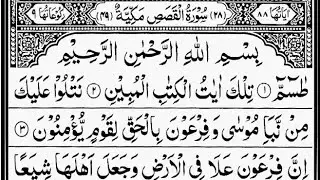 اٰیَاتُهَا ٨٨ (٢٨) سُوْرَةُ الْقَصَصِ مَکِّیَّةٌ (٤٩) رُكُوْعَاتُهَا ٩
بِسْمِ اللّٰهِ الرَّحْمٰنِ الرَّحِیْمِ
طٰسٓمّٓ ۝١ تِلْكَ اٰیٰتُ الْكِتٰبِ الْمُبِیْنِ ۝٢ نَتْلُوْا عَلَیْكَ
مِنْ نَّبَاِ مُوْسٰی وَ فِرْعَوْنَ بِالْحَقِّ لِقَوْمٍ یُّؤْمِنُوْنَ ۝٣
اِنَّ فِرْعَوْنَ عَلَا فِی الْاَرْضِ وَ جَعَلَ اَهْلَهَا شِیَعًا